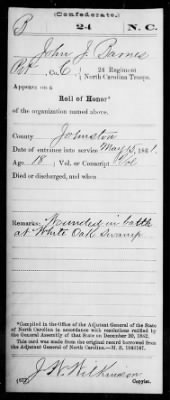 (Confederate.)
B 24 N. C.
John J. Barnes
Pvt., Co. C, 24 Regiment
North Carolina Troops.
Appears on a
Roll of Honor*
of the organization named above.
County Johnston
Date of entrance into service May 13, 1861
Age 18, Vol. or Conscript Vol
Died or discharged, and when
Remarks: Wounded in battle
at White Oak Swamp
*Compiled in the Office of the Adjutant General of the State
of North Carolina in accordance with resolutions ratified by
the General Assembly of that State on December 20, 1862.
This card was made from the original record borrowed from
the Adjutant General of North Carolina.—M. S.
J. W. Wilkinson
Copyist.